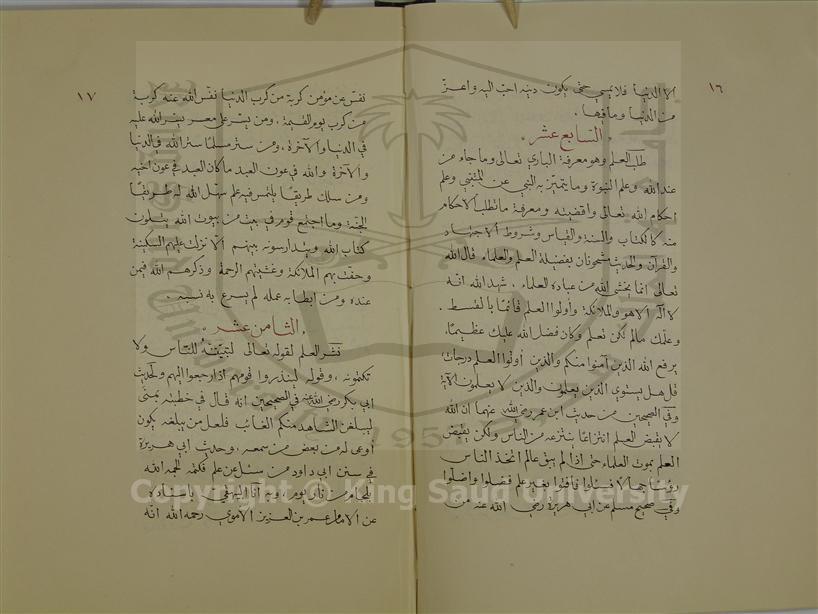 ١٦
الا الدنيا فلا يمسي حتى يكون دينه احب اليه واعز
من الدنيا وما فيها .
. السابع عشر .
طلب العلم وهو معرفة الباري تعالى وما جاء من
عند الله وعلم النبوة وما يتميز به النبي عن المتنبي وعلم
احكام الله تعالى واقضيته ومعرفة ما تطلب الاحكام
منه كالكتاب والسنة والقياس وشروط الاجتهاد
والقرآن والحديث مشحونان بفضيلة العلم والعلماء قال الله
تعالى انما يخشى الله من عباده العلماء . شهد الله انه
لا اله الا هو والملائكة وأولوا العلم قائمًا بالقسط .
وعلمك مالم تكن تعلم وكان فضل الله عليك عظيمًا،
يرفع الله الذين آمنوا منكم والذين أوتوا العلم درجات،
قل هل يستوى الذين يعلمون والذين لا يعلمون الآية
وفي الصحيحين من حديث ابن عمر رضي الله عنهما ان الله
لا يقبض العلم انتزاعًا ينتزعه من الناس ولكن يقبض
العلم بموت العلماء حتى اذا لم يبق عالم اتخذ الناس
رؤسًا جهالا فسئلوا فافتوا بغير علم فضلوا واضلوا
وفي صحيح مسلم عن ابي هريرة رضي الله عنه من
١٧
نفس عن مؤمن كربة من كرب الدنيا نفس الله عنه كربة
من كرب يوم القيمة، ومن يسر على معسر يسر الله عليه
في الدنيا والآخرة، ومن ستر مسلمًا ستره الله في الدنيا
والآخرة والله في عون العبد ما كان العبد في عون اخيه
ومن سلك طريقًا يلتمس فيه علم سهل الله له طريقًا
الجنة وما اجتمع قوم في بيت من بيوت الله يتلون
كتاب الله ويتدارسونه بينهم الا نزلت عليهم السكينة
وحفت بهم الملائكة وغشيتهم الرحمة وذكرهم الله فيمن
عنده ومن ابطا به عمله لم يسرع به نسبه .
. الثامن عشر .
نشر العلم لقوله تعالى لتبيننه للناس ولا
تكتمونه ، وقوله لينذروا قومهم اذا رجعوا اليهم ولحديث
ابي بكر رضي الله عنه في الصحيحين انه قال في خطبته بمنى
ليبلغن الشاهد منكم الغائب فلعل من يبلغه يكون
أوعى له من بعض من سمعه ، وحديث ابي هريرة
في سنن ابي داود من سئل عن علم فكتمه الجمه الله
بلجام من نار يوم، وبه انا البيهقي باسناده
عن الامام عمر بن العزيز الأموي رحمه الله انه
Copyright © King Saud University
1957